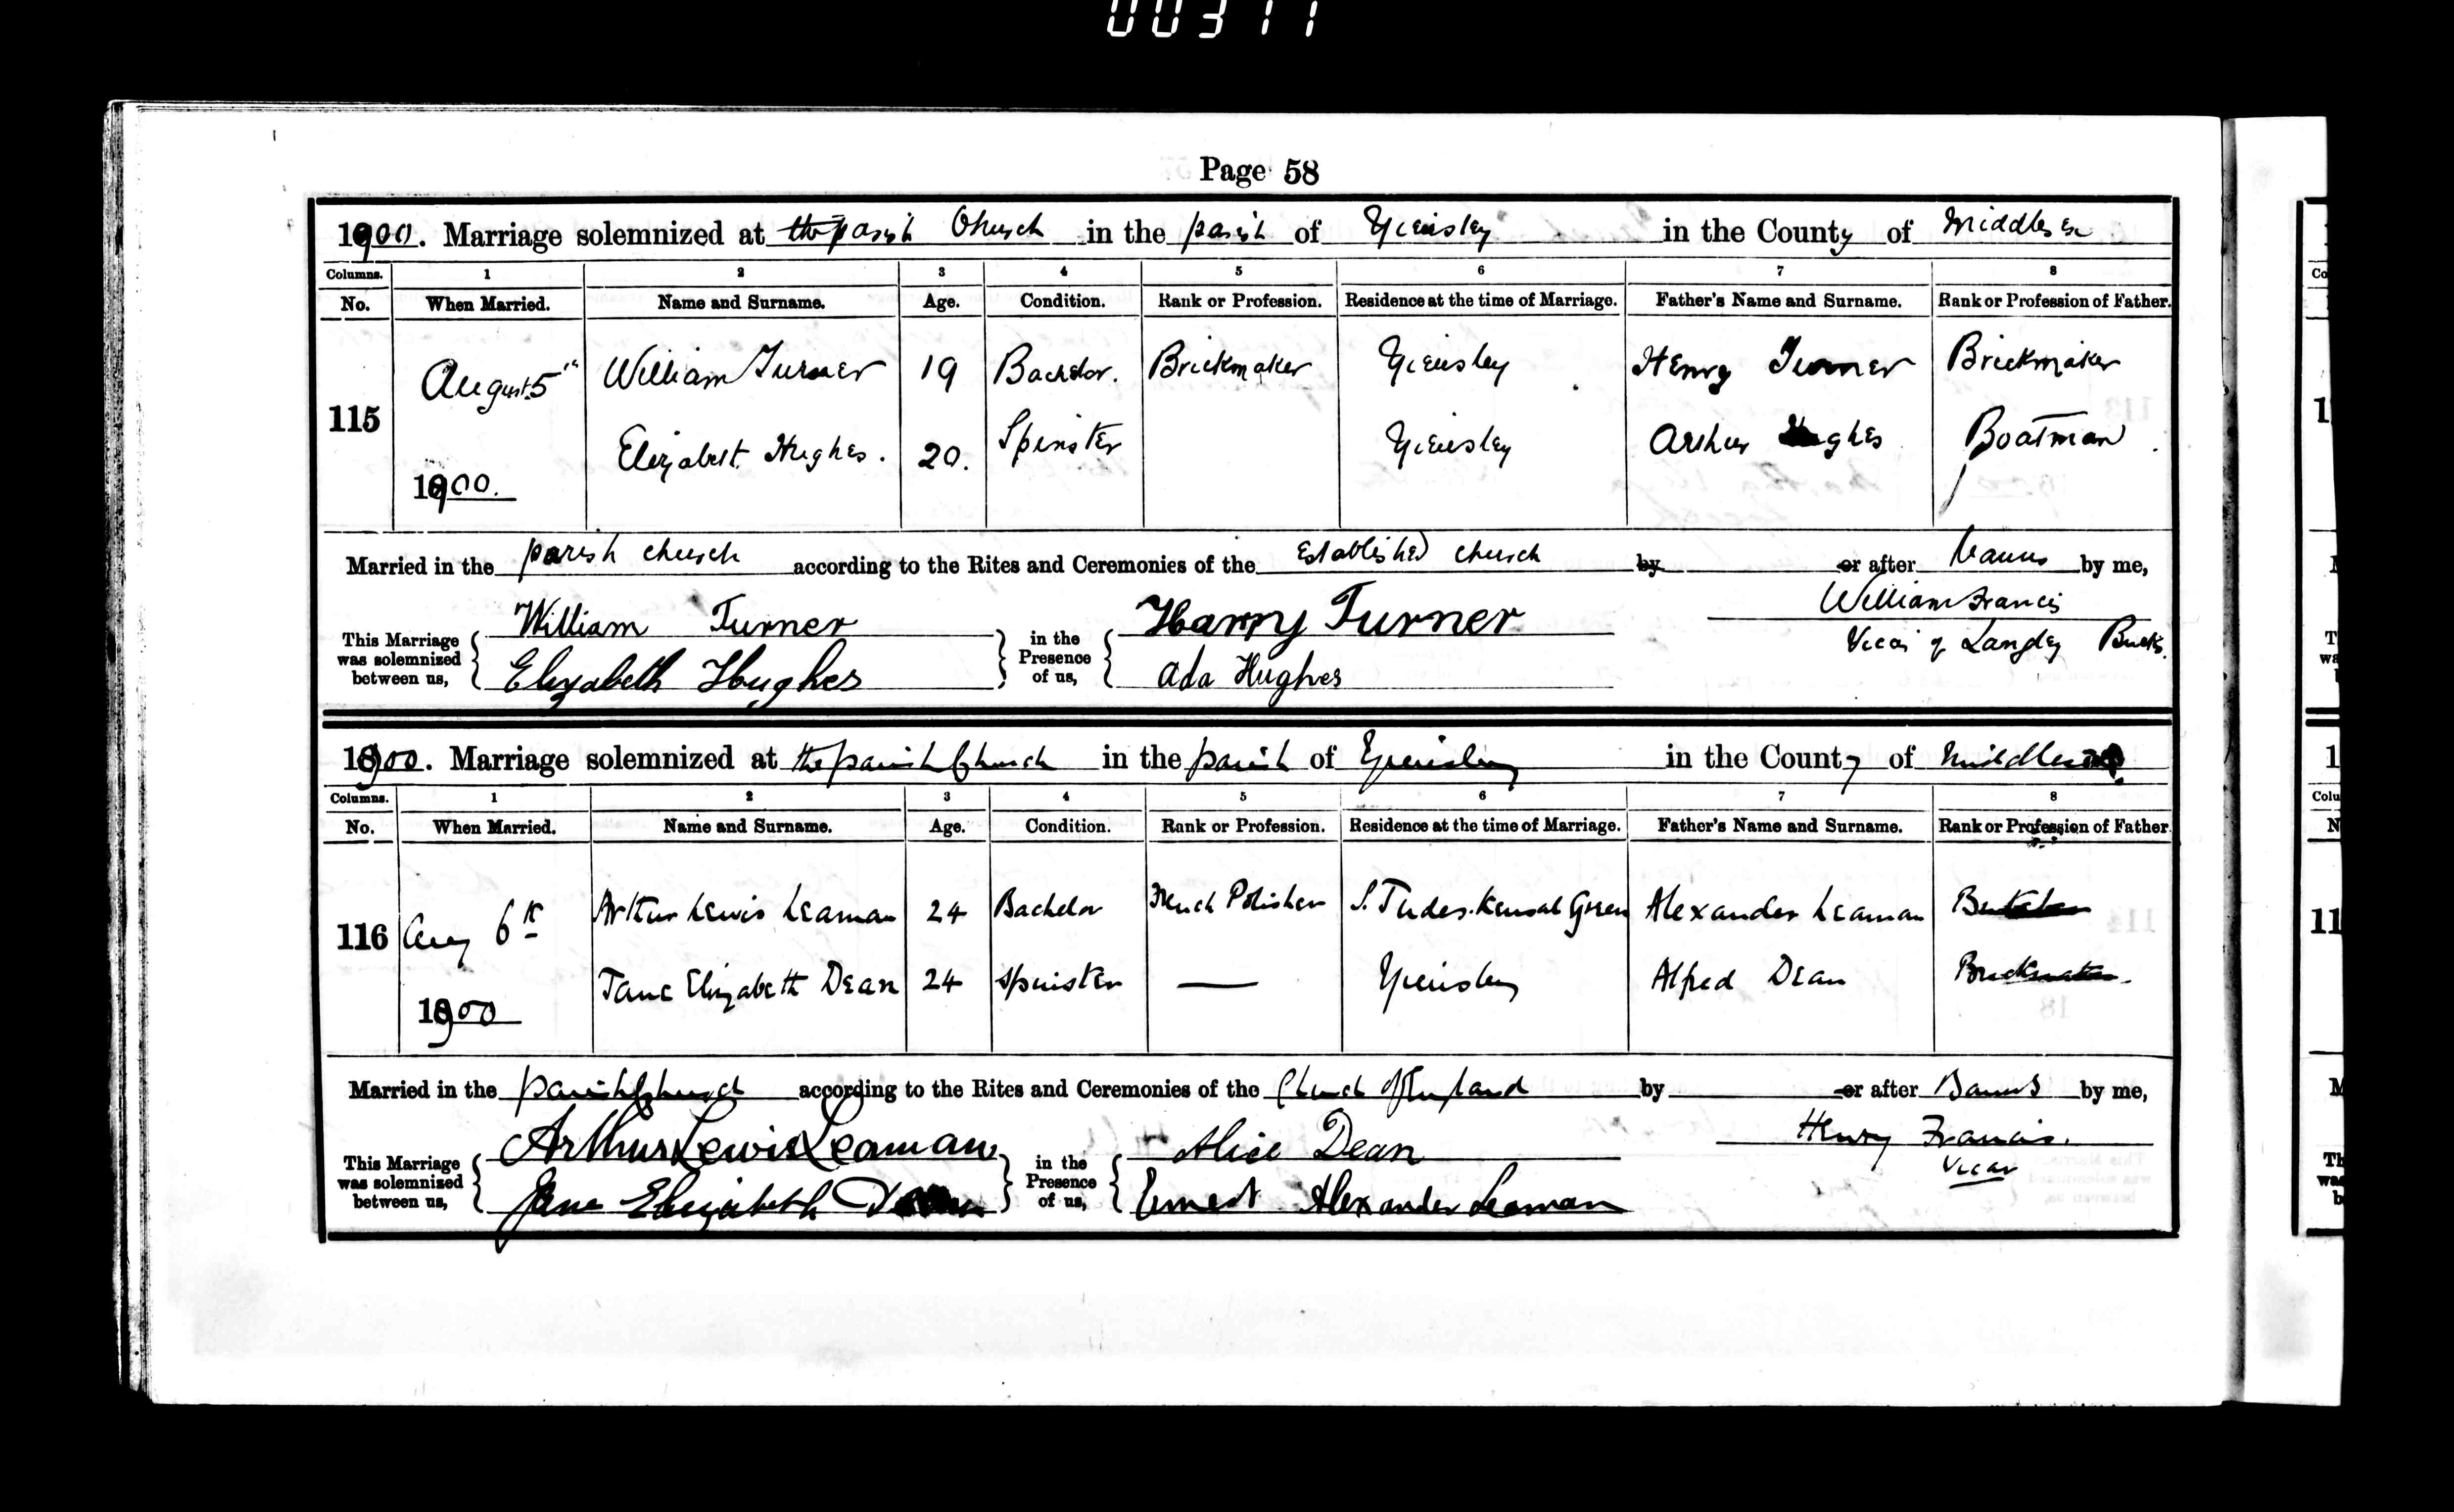 00311
Page 58
1900. Marriage solemnized at the parish Church in the parish of Yiewsley in the County of Middlesex
Columns. 1 2 3 4 5 6 7 8
No. When Married. Name and Surname. Age. Condition. Rank or Profession. Residence at the time of Marriage. Father's Name and Surname. Rank or Profession of Father.
115 August 5th 1900. William Turner 19 Bachelor. Brickmaker Yiewsley Henry Turner Brickmaker
Elizabeth Hughes. 20. Spinster Yiewsley Arthur Hughes Boatman
Married in the parish church according to the Rites and Ceremonies of the Established church by or after Banns by me,
This Marriage was solemnized between us, William Turner Elizabeth Hughes in the Presence of us, Harry Turner Ada Hughes William Francis
Vicar of Langley Bucks.
1900. Marriage solemnized at the parish Church in the parish of Yiewsley in the County of Middlesex
Columns. 1 2 3 4 5 6 7 8
No. When Married. Name and Surname. Age. Condition. Rank or Profession. Residence at the time of Marriage. Father's Name and Surname. Rank or Profession of Father
116 Aug 6th 1900 Arthur Lewis Leaman 24 Bachelor French Polisher S. Judes. Kensal Green Alexander Leaman
Jane Elizabeth Dean 24 Spinster — Yiewsley Alfred Dean Brickmaker.
Married in the parish Church according to the Rites and Ceremonies of the Church of England by or after Banns by me,
This Marriage was solemnized between us, Arthur Lewis Leaman Jane Elizabeth in the Presence of us, Alice Dean Ernest Alexander Leaman Henry Francis.
Vicar